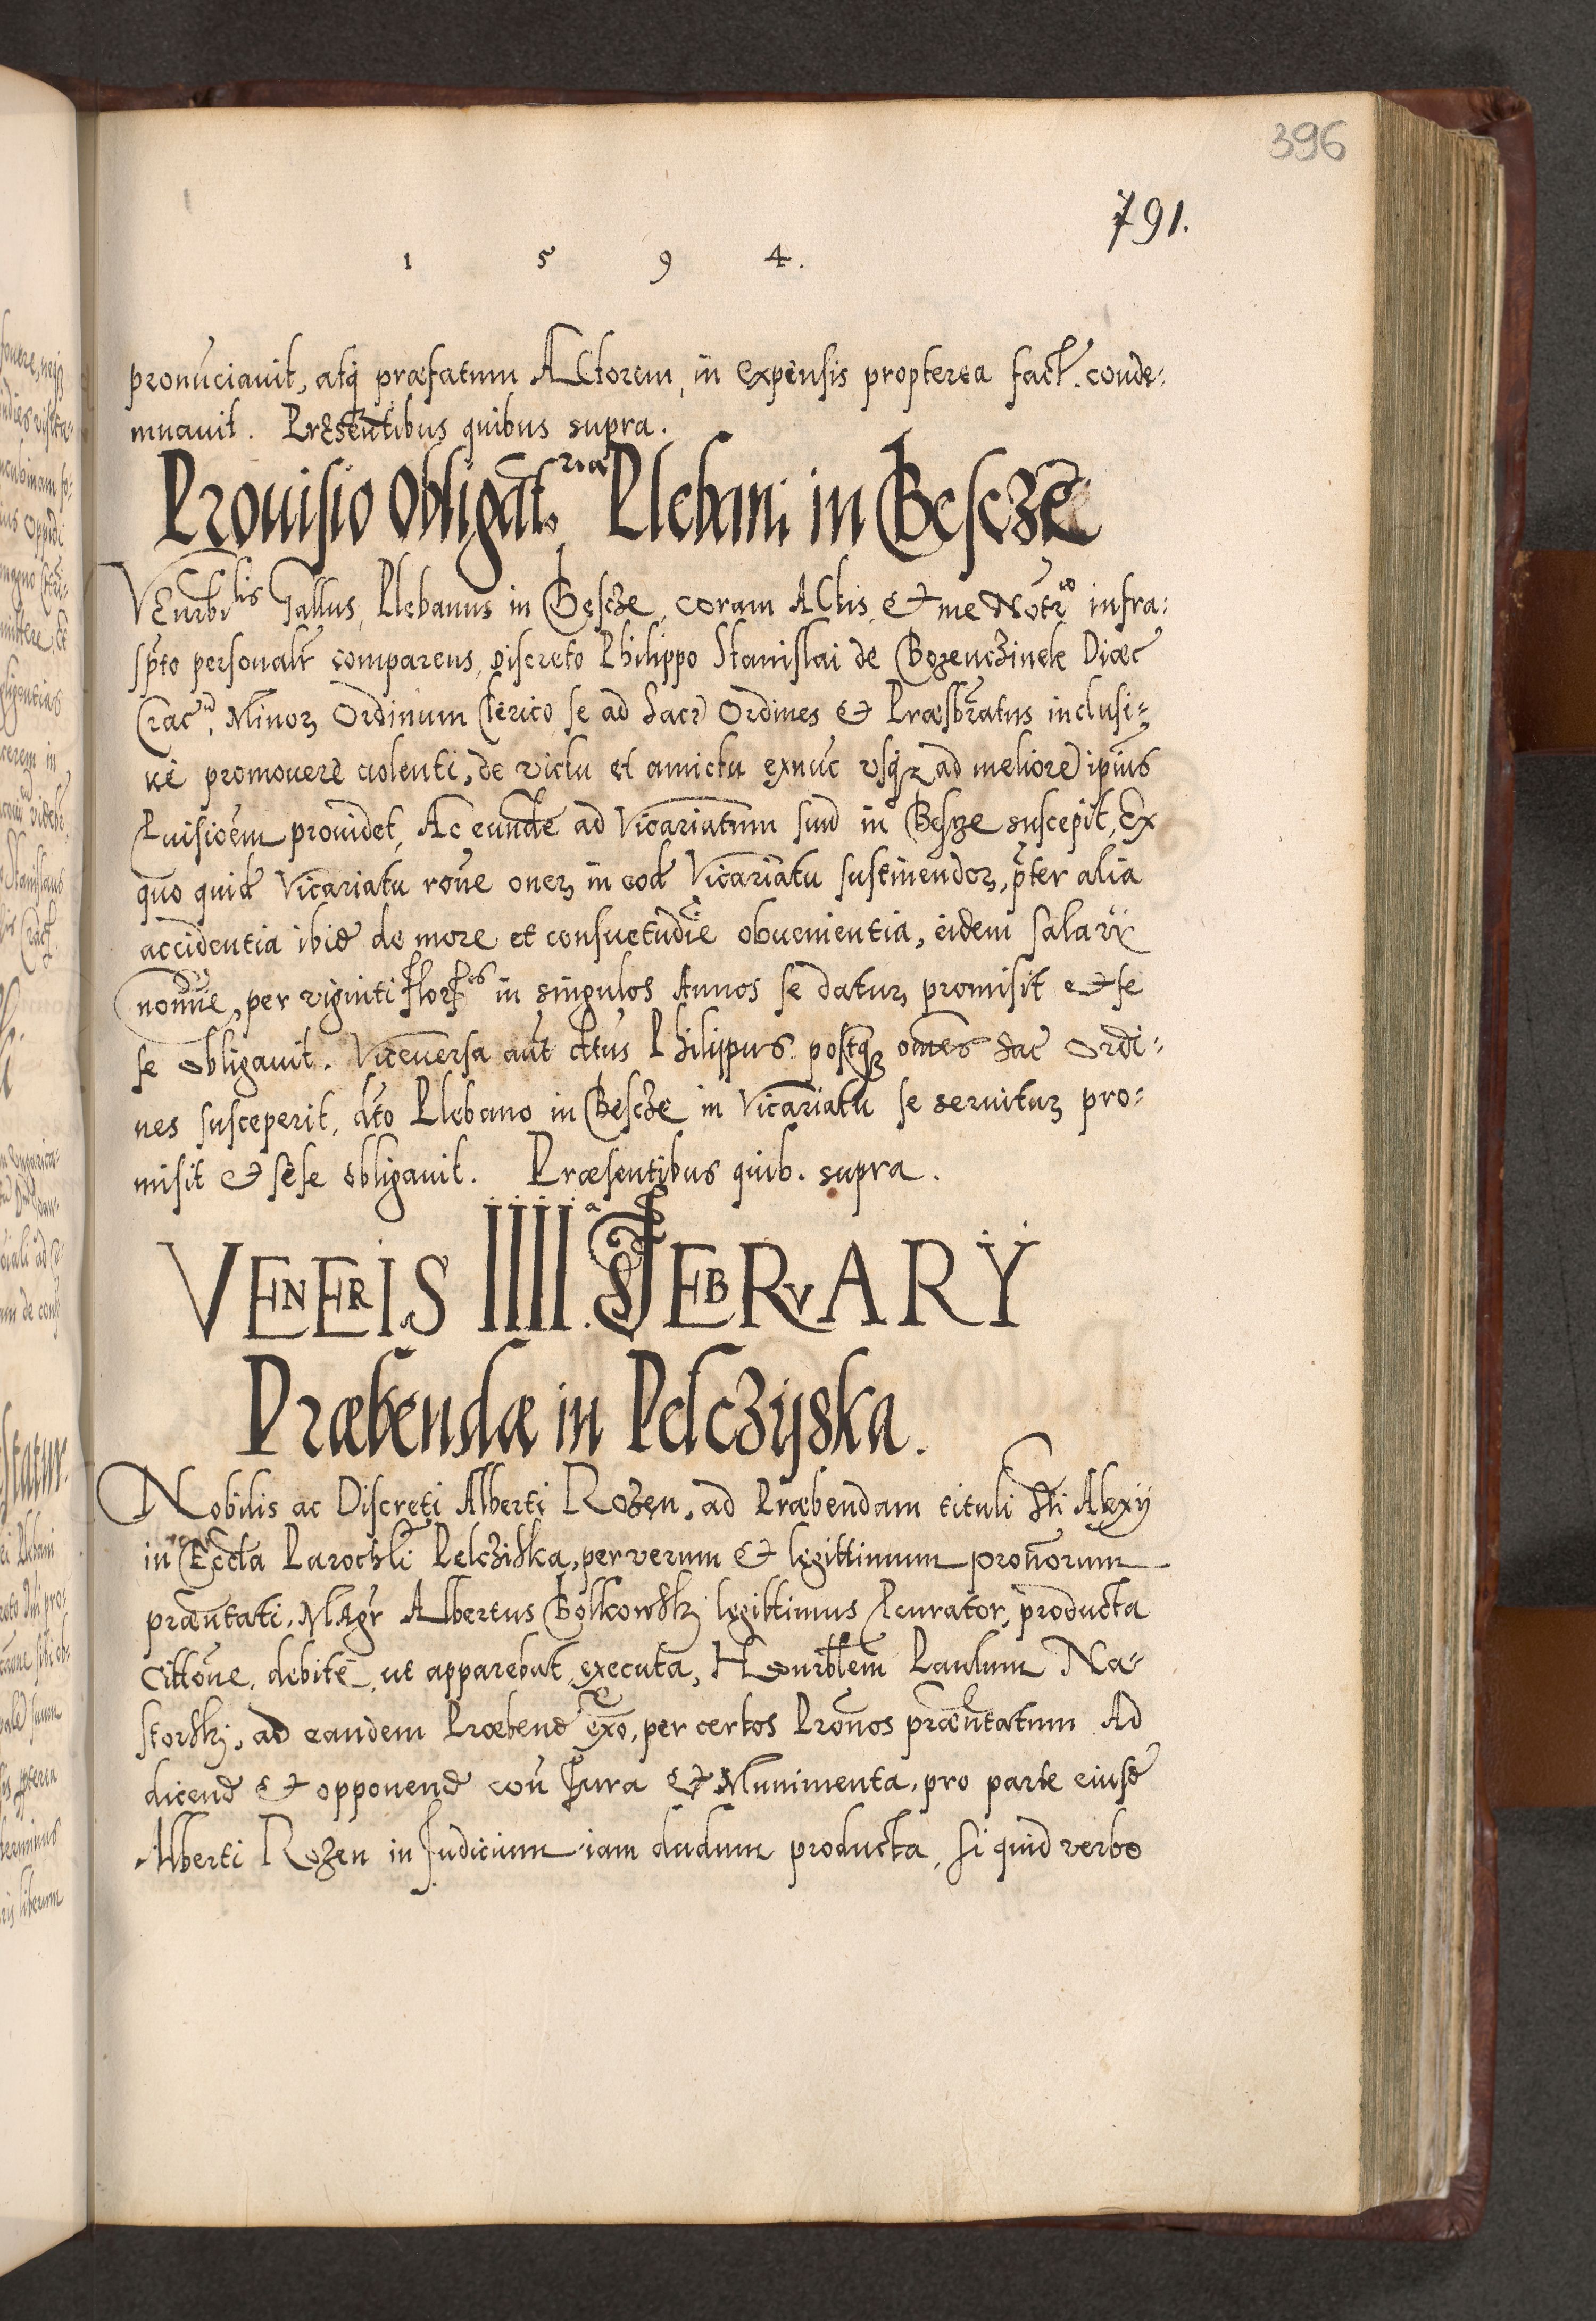 396
791.
1 5 9 4.
pronunciavit, atq́ præfatum Actorem, in expensis propterea fact. conde-
mnavit. Præsentibus quibus supra.
Prouisio Obligat.riæ Plebani in Besczę
Venrbilis Gallus, Plebanus in Besczę, coram Actis, & me Notrio infra-
spto personalr comparens, discreto Philippo Stanislai de Bozenczinek Diæc
Crac, Minoꝝ Ordinum Clerico se ad Sacr Ordines & Præsbratus inclusi-
ve promovere volenti, de victu et amictu exnuc usq ad meliore ipius
Puisioem providet, Ac eunde ad Vicariatum suu in Besze suscepit, Ex
quo quid Vicariatu rone oneꝝ in eod Vicariatu sustinendoꝝ, pter alia
accidentia ibid de more et consvetudie obvenientia, eidem salarij
nomine, per viginti Flores in singulos Annos se daturꝝ promisit & se
se obligavit. Viceversa aut dttus Philippus postq omes sac Ordi-
nes susceperit, dto Plebano in Besczę in Vicariatu se servituꝝ pro-
misit & sese obligavit. Præsentibus quib. supra.
VENERIS IIIIa FEBRVARY
Præbendæ in Pelczyska.
Nobilis ac Discreti Alberti Rozen, ad Præbendam tituli Sti Alexij
in Eccta Parochli Pelcziska, per verum & legittimum pronorum
præntati, Magr Albertus Bolkowsky legittimus Pcurator, producta
Cittone, debite, ut apparebat, executa, Honrblem Paulum Na-
storsky, ad eandem Præbend ex o, per certos Pronos præntatum Ad
dicend & opponend con Jura & Munimenta, pro parte eiusd
Alberti Rozen in Judicium iam dudum producta, si quid verbo